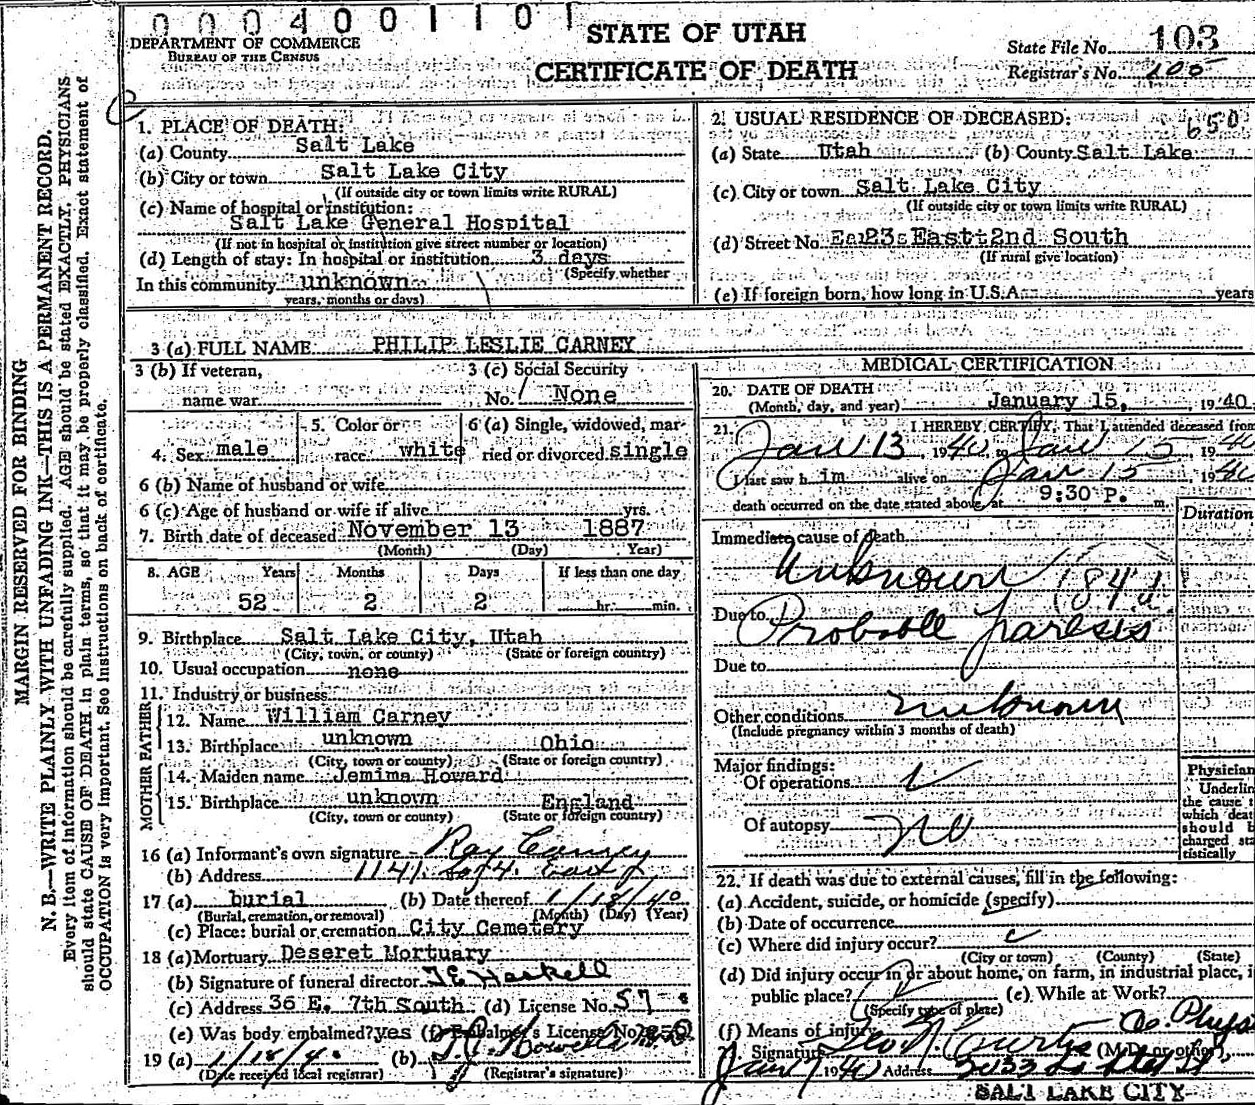 0004001101
STATE OF UTAH
CERTIFICATE OF DEATH
DEPARTMENT OF COMMERCE
BUREAU OF THE CENSUS
State File No. 103
Registrar's No. 105
MARGIN RESERVED FOR BINDING
N. B.—WRITE PLAINLY WITH UNFADING INK—THIS IS A PERMANENT RECORD.
Every item of information should be carefully supplied. AGE should be stated EXACTLY. PHYSICIANS
should state CAUSE OF DEATH in plain terms, so that it may be properly classified. Exact statement of
OCCUPATION is very important. See instructions on back of certificate.
1. PLACE OF DEATH:
(a) County Salt Lake
(b) City or town Salt Lake City
(If outside city or town limits write RURAL)
(c) Name of hospital or institution:
Salt Lake General Hospital
(If not in hospital or institution give street number or location)
(d) Length of stay: In hospital or institution 3 days
(Specify whether
In this community unknown
years, months or days)
2. USUAL RESIDENCE OF DECEASED:
650
(a) State Utah (b) County Salt Lake
(c) City or town Salt Lake City
(If outside city or town limits write RURAL)
(d) Street No. 23 East 2nd South
(If rural give location)
(e) If foreign born, how long in U.S.A. years
3 (a) FULL NAME PHILIP LESLIE CARNEY
3 (b) If veteran, name war
3 (c) Social Security No. None
4. Sex male
5. Color or race white
6 (a) Single, widowed, married or divorced single
6 (b) Name of husband or wife
6 (c) Age of husband or wife if alive yrs.
7. Birth date of deceased November 13 1887
(Month) (Day) Year)
8. AGE Years Months Days If less than one day
52 2 2 hr. min.
9. Birthplace Salt Lake City, Utah
(City, town, or county) (State or foreign country)
10. Usual occupation none
11. Industry or business
FATHER
12. Name William Carney
13. Birthplace unknown Ohio
(City, town or county) (State or foreign country)
MOTHER
14. Maiden name Jemima Howard
15. Birthplace unknown England
(City, town or county) (State or foreign country)
16 (a) Informant's own signature Ray Carney
(b) Address 1141 So. 4 East
17 (a) burial (b) Date thereof 1/18/40
(Burial, cremation, or removal) (Month) (Day) (Year)
(c) Place: burial or cremation City Cemetery
18 (a) Mortuary Deseret Mortuary
(b) Signature of funeral director Haskell
(c) Address 36 E. 7th South (d) License No. 57
(e) Was body embalmed? yes (f) Embalmer's License No.
19 (a) 1/18/40 (b)
(Date received local registrar) (Registrar's signature)
MEDICAL CERTIFICATION
20. DATE OF DEATH
(Month, day, and year) January 15, 1940
21. I HEREBY CERTIFY, That I attended deceased from
Jan 13, 1940, to Jan 15 1940
I last saw him alive on Jan 15, 1940
death occurred on the date stated above at 9:30 P. m.
Duration
Immediate cause of death
Unknown
Due to Probable Paresis
Due to
Other conditions unknown
(Include pregnancy within 3 months of death)
Major findings:
Of operations
Of autopsy no
Physician
Underlin
the cause t
which deat
should b
charged sta
tistically
22. If death was due to external causes, fill in the following:
(a) Accident, suicide, or homicide (specify)
(b) Date of occurrence
(c) Where did injury occur?
(City or town) (County) (State)
(d) Did injury occur in or about home, on farm, in industrial place, i
public place? (e) While at Work?
(Specify type of place)
(f) Means of injury
Signature Geo N Curtis Co. Phys
(M.D. or other)
Jan 1940 Address
SALT LAKE CITY